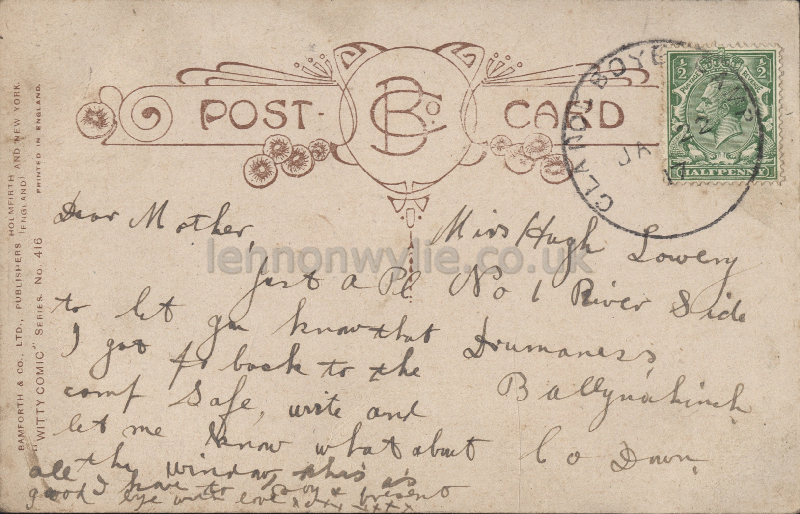 POST CARD
BCo
½ ½
HALFPENNY
CLANDEBOYE
JA 22
17
BAMFORTH & CO., LTD., PUBLISHERS HOLMFIRTH (ENGLAND) AND NEW YORK.
"WITTY COMIC" SERIES. No. 416 PRINTED IN ENGLAND.
lennonwylie.co.uk
Dear Mother,
Just a PC
to let you know that
I got to back to the
camp safe, write and
let me know what about
the window, this is
all I have to say at present
good bye with love xxxx xxxx
Miss Hugh Lowery
No 1 River Side
Drumaness
Ballynahinch
Co Down